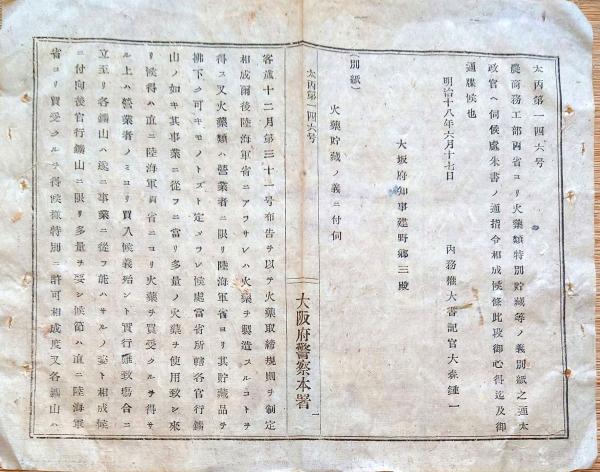 太丙第一四六号
農商務工部両省ヨリ火薬類特別貯蔵等ノ義別紙之通太
政官ヘ伺候處朱書ノ通指令相成候條此段御心得迄及御
通牒候也
明治十八年六月十七日
内務権大書記官大森鍾一
大坂府知事建野郷三殿
(別紙)
火薬貯蔵ノ義ニ付伺
大阪府警察本署
一
太丙第一四六号
客歳十二月第三十一号布告ヲ以テ火薬取締規則ヲ制定
相成爾後陸海軍省ニアラサレハ火薬ヲ製造スルコトヲ
得ス又火薬類ハ営業者ニ限リ陸海軍省ヨリ其貯蔵品ヲ
拂下ク可キモノトス定メラレ候處當省所轄各官行鑛
山ノ如キ其事業ニ從フニ當リ多量ノ火薬ヲ使用致シ來
リ候得ハ直ニ陸海軍両省ニヨリ火薬ヲ買受クルヲ得サ
ル上ハ営業者ノミヨリ買入候義殆ント實行難致場合ニ
立至リ各鑛山ハ遂ニ事業ニ從フ能ハサルノ姿ト相成候
ニ付向後官行鑛山ニ限リ多量ヲ要シ候節ハ直ニ陸海軍
省ヨリ買受クルヲ得候様特別ニ許可相成度又各鑛山ハ